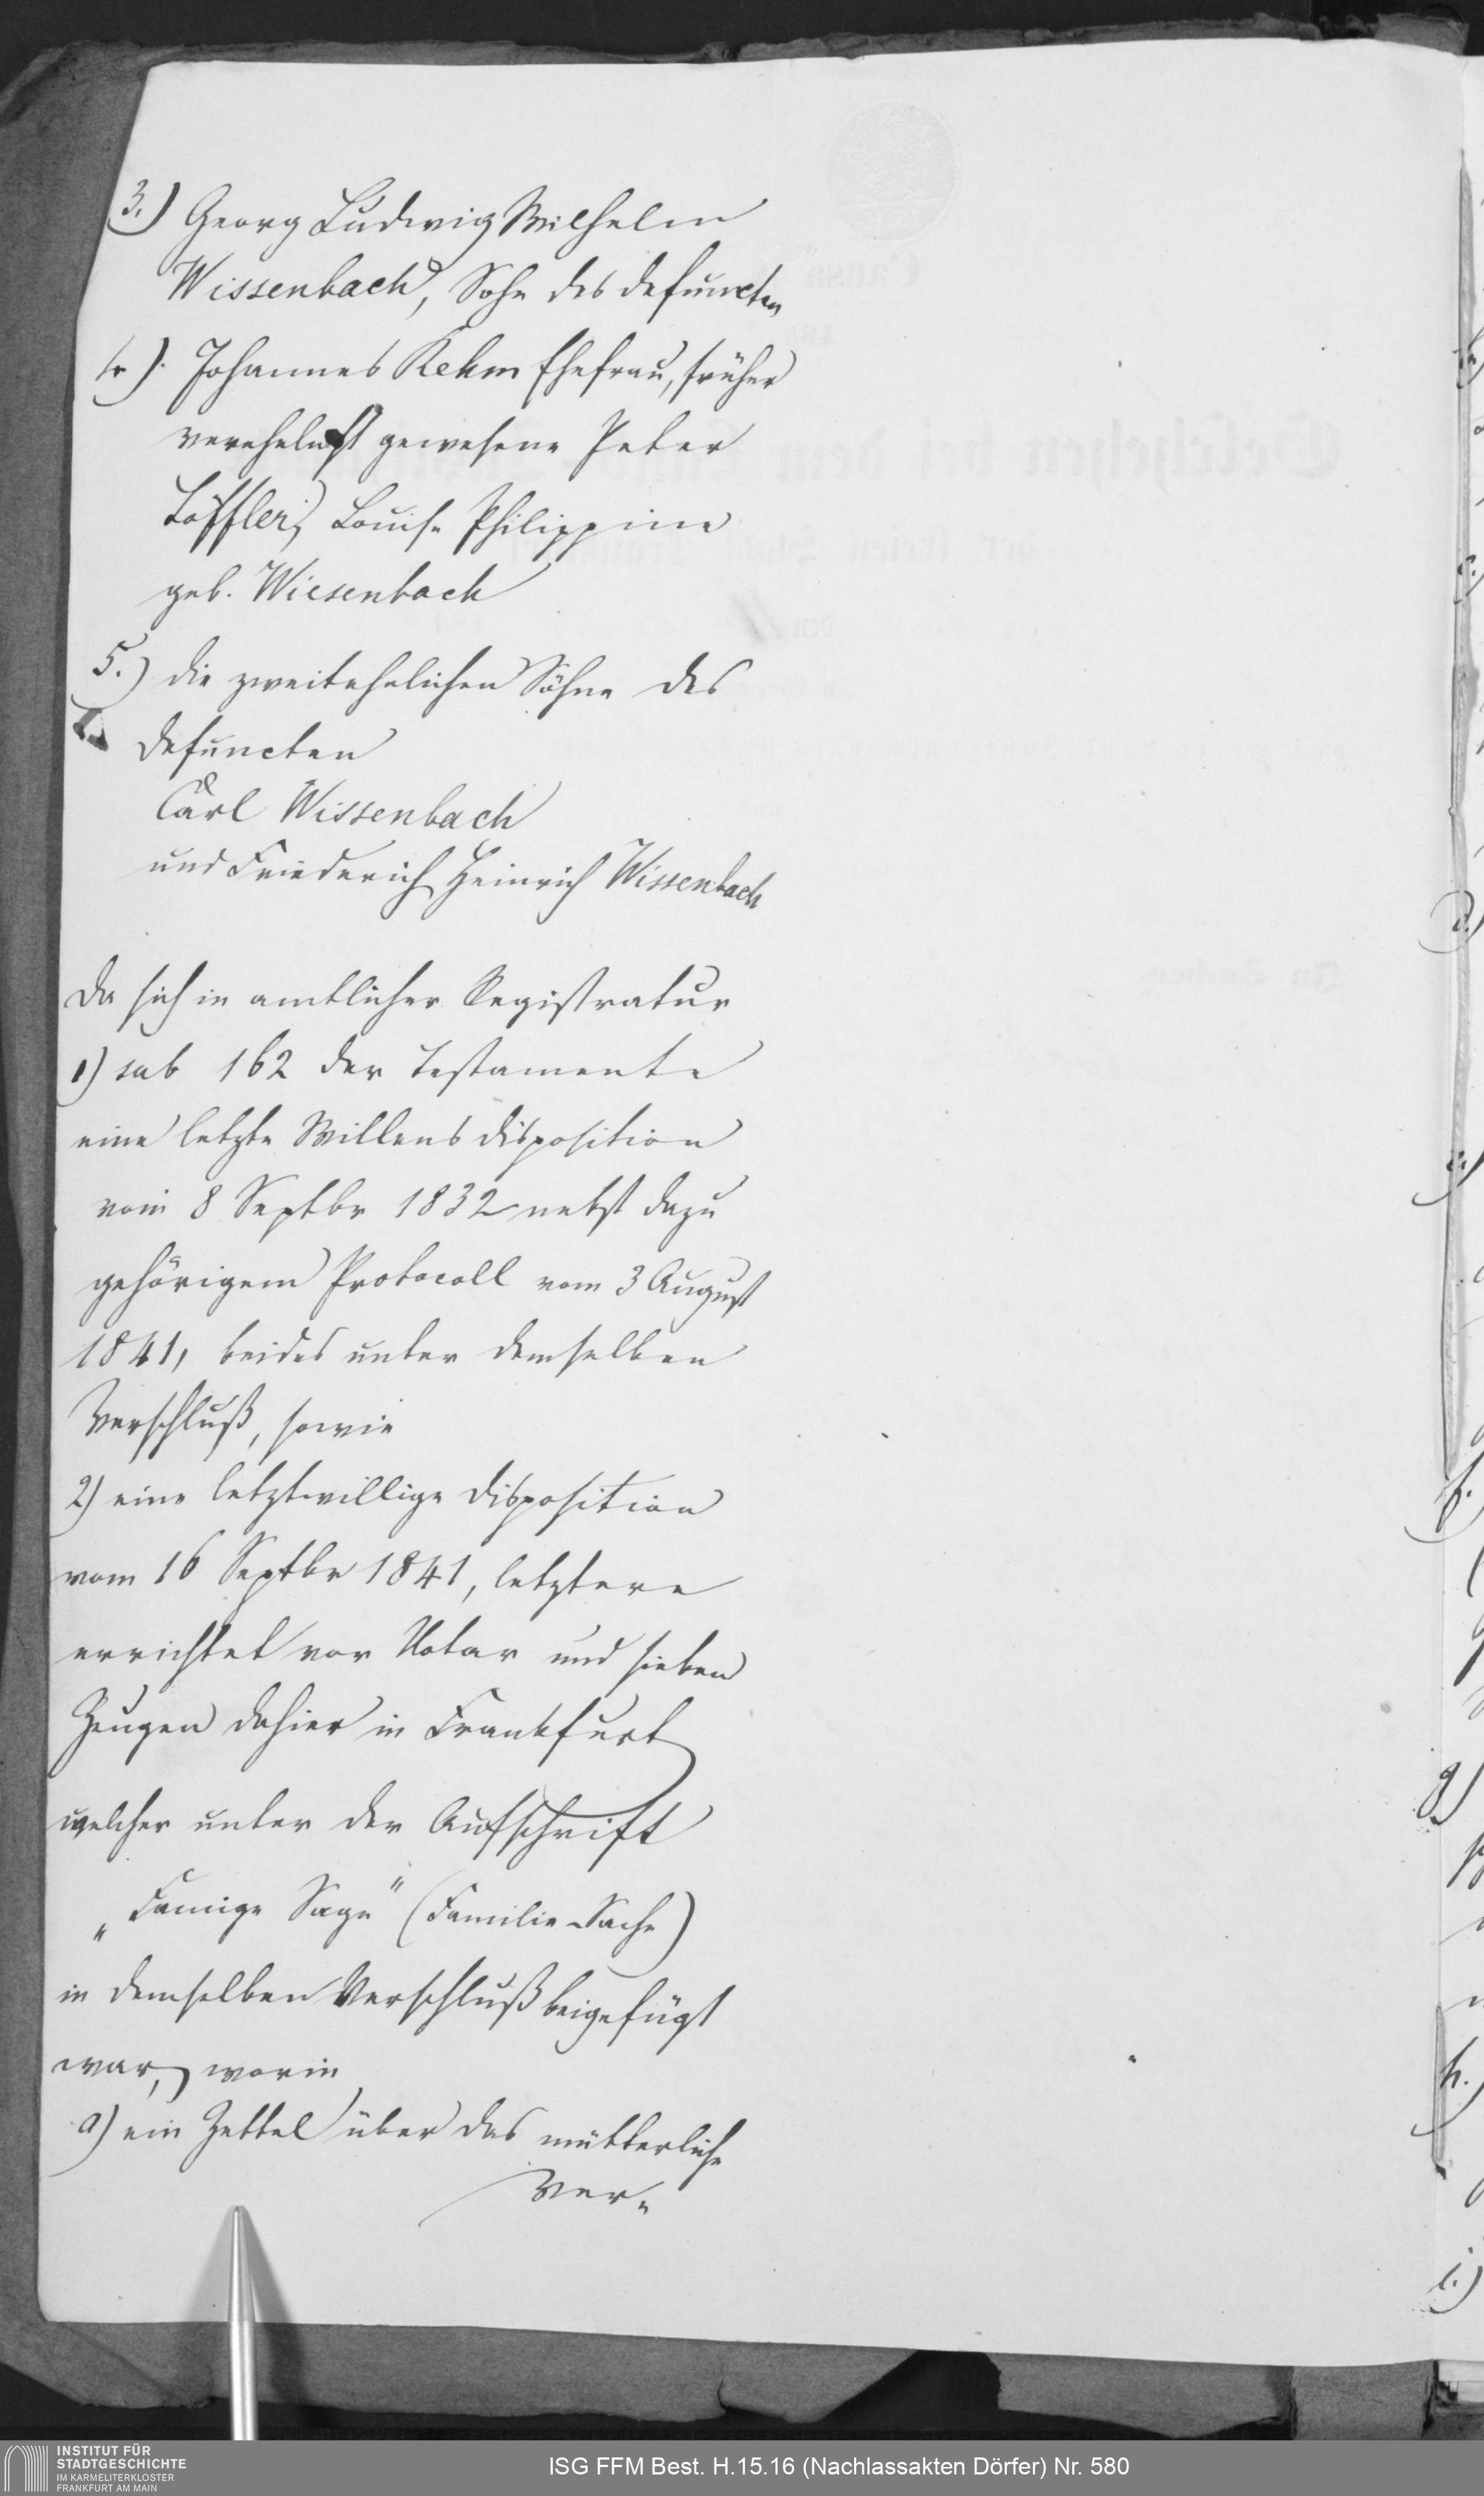 3.) Georg Ludwig Wilhelm
Wissenbach, Sohn des defuncten
4.) Johannes Rehm Ehefrau, früher
verehelicht gewesene Peter
Löffler, Louise Philippine
geb. Wiesenbach
5.) die zweitehelichen Söhne des
defuncten
Carl Wissenbach
und Friederich Heinrich Wissenbach
Da sich in amtlicher Registratur
1) sub 162 der Testamente
eine letzte Willensdisposition
vom 8 Septbr 1832 nebst dazu
gehörigem Protocoll vom 3 August
1841, beides unter demselben
Verschluß, sowie
2) eine letztwillige Disposition
vom 16 Septbr 1841, letztere
errichtet vor Notar und sieben
Zeugen dahier in Frankfurt
welcher unter der Aufschrift
„Famige Sage“ (Familie-Sache)
in demselben Verschluß beigefügt
war, worin
a) ein Zettel über das mütterliche
Ver-
INSTITUT FÜR
STADTGESCHICHTE
IM KARMELITERKLOSTER
FRANKFURT AM MAIN
ISG FFM Best. H.15.16 (Nachlassakten Dörfer) Nr. 580